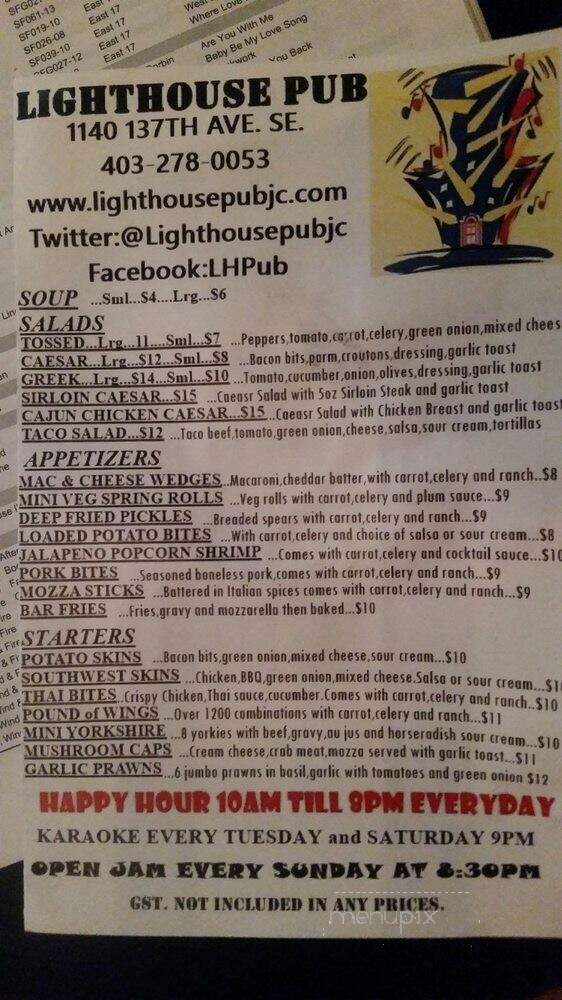 SF061-13
SF019-10
SF026-08
SF039-10
East 17
East 17
East 17
Where Love
Are You With Me
Baby Be My Love Song
You Back
LIGHTHOUSE PUB
1140 137TH AVE. SE.
403-278-0053
www.lighthousepubjc.com
Twitter:@Lighthousepubjc
Facebook:LHPub
SOUP ...Sml...$4....Lrg...$6
SALADS
TOSSED...Lrg...11....Sml...$7 ...Peppers,tomato,carrot,celery,green onion,mixed chees
CAESAR...Lrg...$12...Sml...$8 ...Bacon bits,parm,croutons,dressing,garlic toast
GREEK...Lrg...$14...Sml...$10 ...Tomato,cucumber,onion,olives,dressing,garlic toast
SIRLOIN CAESAR...$15 ...Caeasr Salad with 5oz Sirloin Steak and garlic toast
CAJUN CHICKEN CAESAR...$15...Caeasr Salad with Chicken Breast and garlic toast
TACO SALAD...$12 ...Taco beef,tomato,green onion,cheese,salsa,sour cream,tortillas
APPETIZERS
MAC & CHEESE WEDGES..Macaroni,cheddar batter,with carrot,celery and ranch..$8
MINI VEG SPRING ROLLS ...Veg rolls with carrot,celery and plum sauce...$9
DEEP FRIED PICKLES ...Breaded spears with carrot,celery and ranch...$9
LOADED POTATO BITES ...With carrot,celery and choice of salsa or sour cream...$8
JALAPENO POPCORN SHRIMP ...Comes with carrot,celery and cocktail sauce...$10
PORK BITES ...Seasoned boneless pork,comes with carrot,celery and ranch...$9
MOZZA STICKS ...Battered in Italian spices comes with carrot,celery and ranch...$9
BAR FRIES ...Fries,gravy and mozzarella then baked...$10
STARTERS
POTATO SKINS ...Bacon bits,green onion,mixed cheese,sour cream...$10
SOUTHWEST SKINS ...Chicken,BBQ,green onion,mixed cheese.Salsa or sour cream...$1
THAI BITES..Crispy Chicken,Thai sauce,cucumber.Comes with carrot,celery and ranch..$10
POUND of WINGS ...Over 1200 combinations with carrot,celery and ranch...$11
MINI YORKSHIRE ...8 yorkies with beef,gravy,au jus and horseradish sour cream...$10
MUSHROOM CAPS ...Cream cheese,crab meat,mozza served with garlic toast...$11
GARLIC PRAWNS...6 jumbo prawns in basil,garlic with tomatoes and green onion $12
HAPPY HOUR 10AM TILL 8PM EVERYDAY
KARAOKE EVERY TUESDAY and SATURDAY 9PM
OPEN JAM EVERY SUNDAY AT 6:30PM
GST. NOT INCLUDED IN ANY PRICES.
menupix